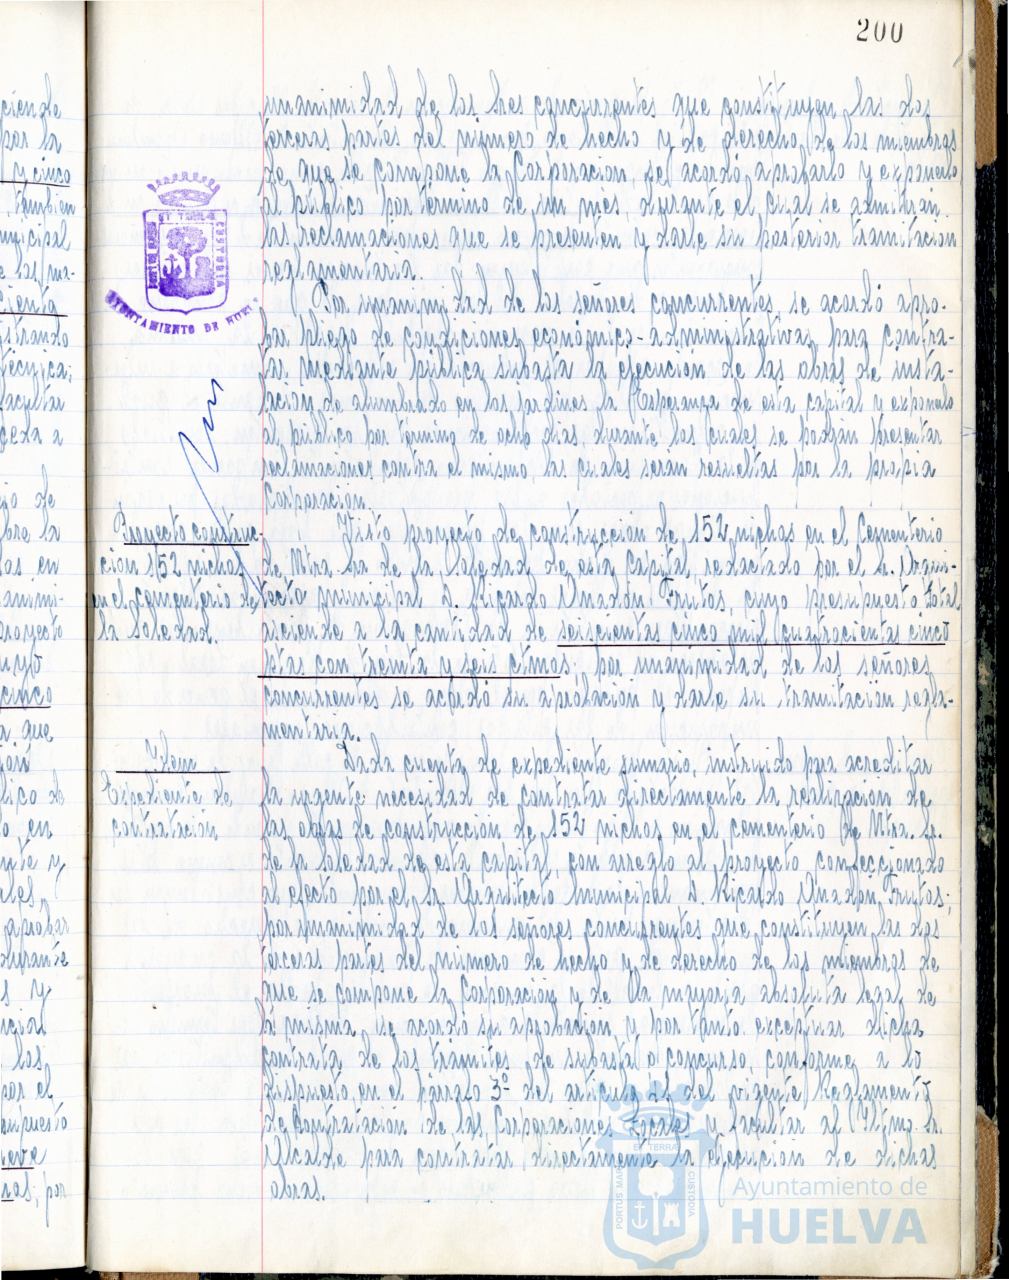 200
unanimidad de los Sres concurrentes que constituyen las dos
terceras partes del número de hecho y de derecho, de los miembros
de que se compone la Corporación, se acordó aprobarlo y exponerlo
al público por término de un mes, durante el cual se admitirán
las reclamaciones que se presenten y darle su posterior tramitación
reglamentaria.
Por unanimidad de los señores concurrentes, se acordó apro-
bar pliego de condiciones económico-administrativas para contra-
tar mediante pública subasta la ejecución de las obras de insta-
lación de alumbrado en los Jardines la Esperanza de esta capital y exponerlo
al público por término de ocho días durante los cuales se podrán presentar
reclamaciones contra el mismo, las cuales serán resueltas por la propia
Corporación.
Proyecto construc-
ción 152 nichos
en el cementerio de
la Soledad
Visto proyecto de construcción de 152 nichos en el Cementerio
de Ntra. Sra de la Soledad de esta Capital, redactado por el Sr. Arqui-
tecto municipal D. Ricardo Anadón Frutos, cuyo presupuesto total
asciende a la cantidad de seiscientas cinco mil cuatrocientas cinco
ptas con treinta y seis ctmos; por unanimidad de los señores
concurrentes se acordó su aprobación y darle su tramitación regla-
mentaria.
Idem
Expediente de
contratación
Dada cuenta de expediente sumario, instruido para acreditar
la urgente necesidad de contratar directamente la realización de
las obras de construcción de 152 nichos en el cementerio de Ntra. Sr.
de la Soledad de esta capital, con arreglo al proyecto confeccionado
al efecto por el Sr. Arquitecto Municipal D. Ricardo Anadón Frutos;
por unanimidad de los señores concurrentes que constituyen las dos
terceras partes del número de hecho y de derecho de los miembros de
que se compone la Corporación y de la mayoría absoluta legal de
la misma, se acordó su aprobación, y por tanto exceptuar dicha
contrata de los trámites de subasta o concurso, conforme a lo
dispuesto en el párrafo 3º del artículo 41 del vigente Reglamento
de Contratación de las Corporaciones Locales y facultar al Iltmo. Sr.
Alcalde para contratar directamente la ejecución de dichas
obras.
AYUNTAMIENTO DE
PORTUS MARIS
ET TERRAE
CUSTODIA
Ayuntamiento de
HUELVA